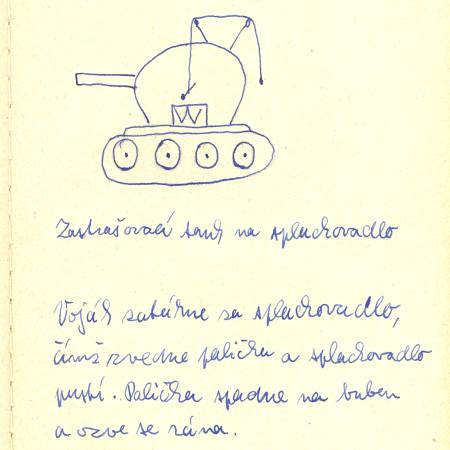 Zastrašovací tank na splachovadlo
Voják zatáhne za splachovadlo,
čímž zvedne palička a splachovadlo
pustí. Palička spadne na buben
a ozve se rána.